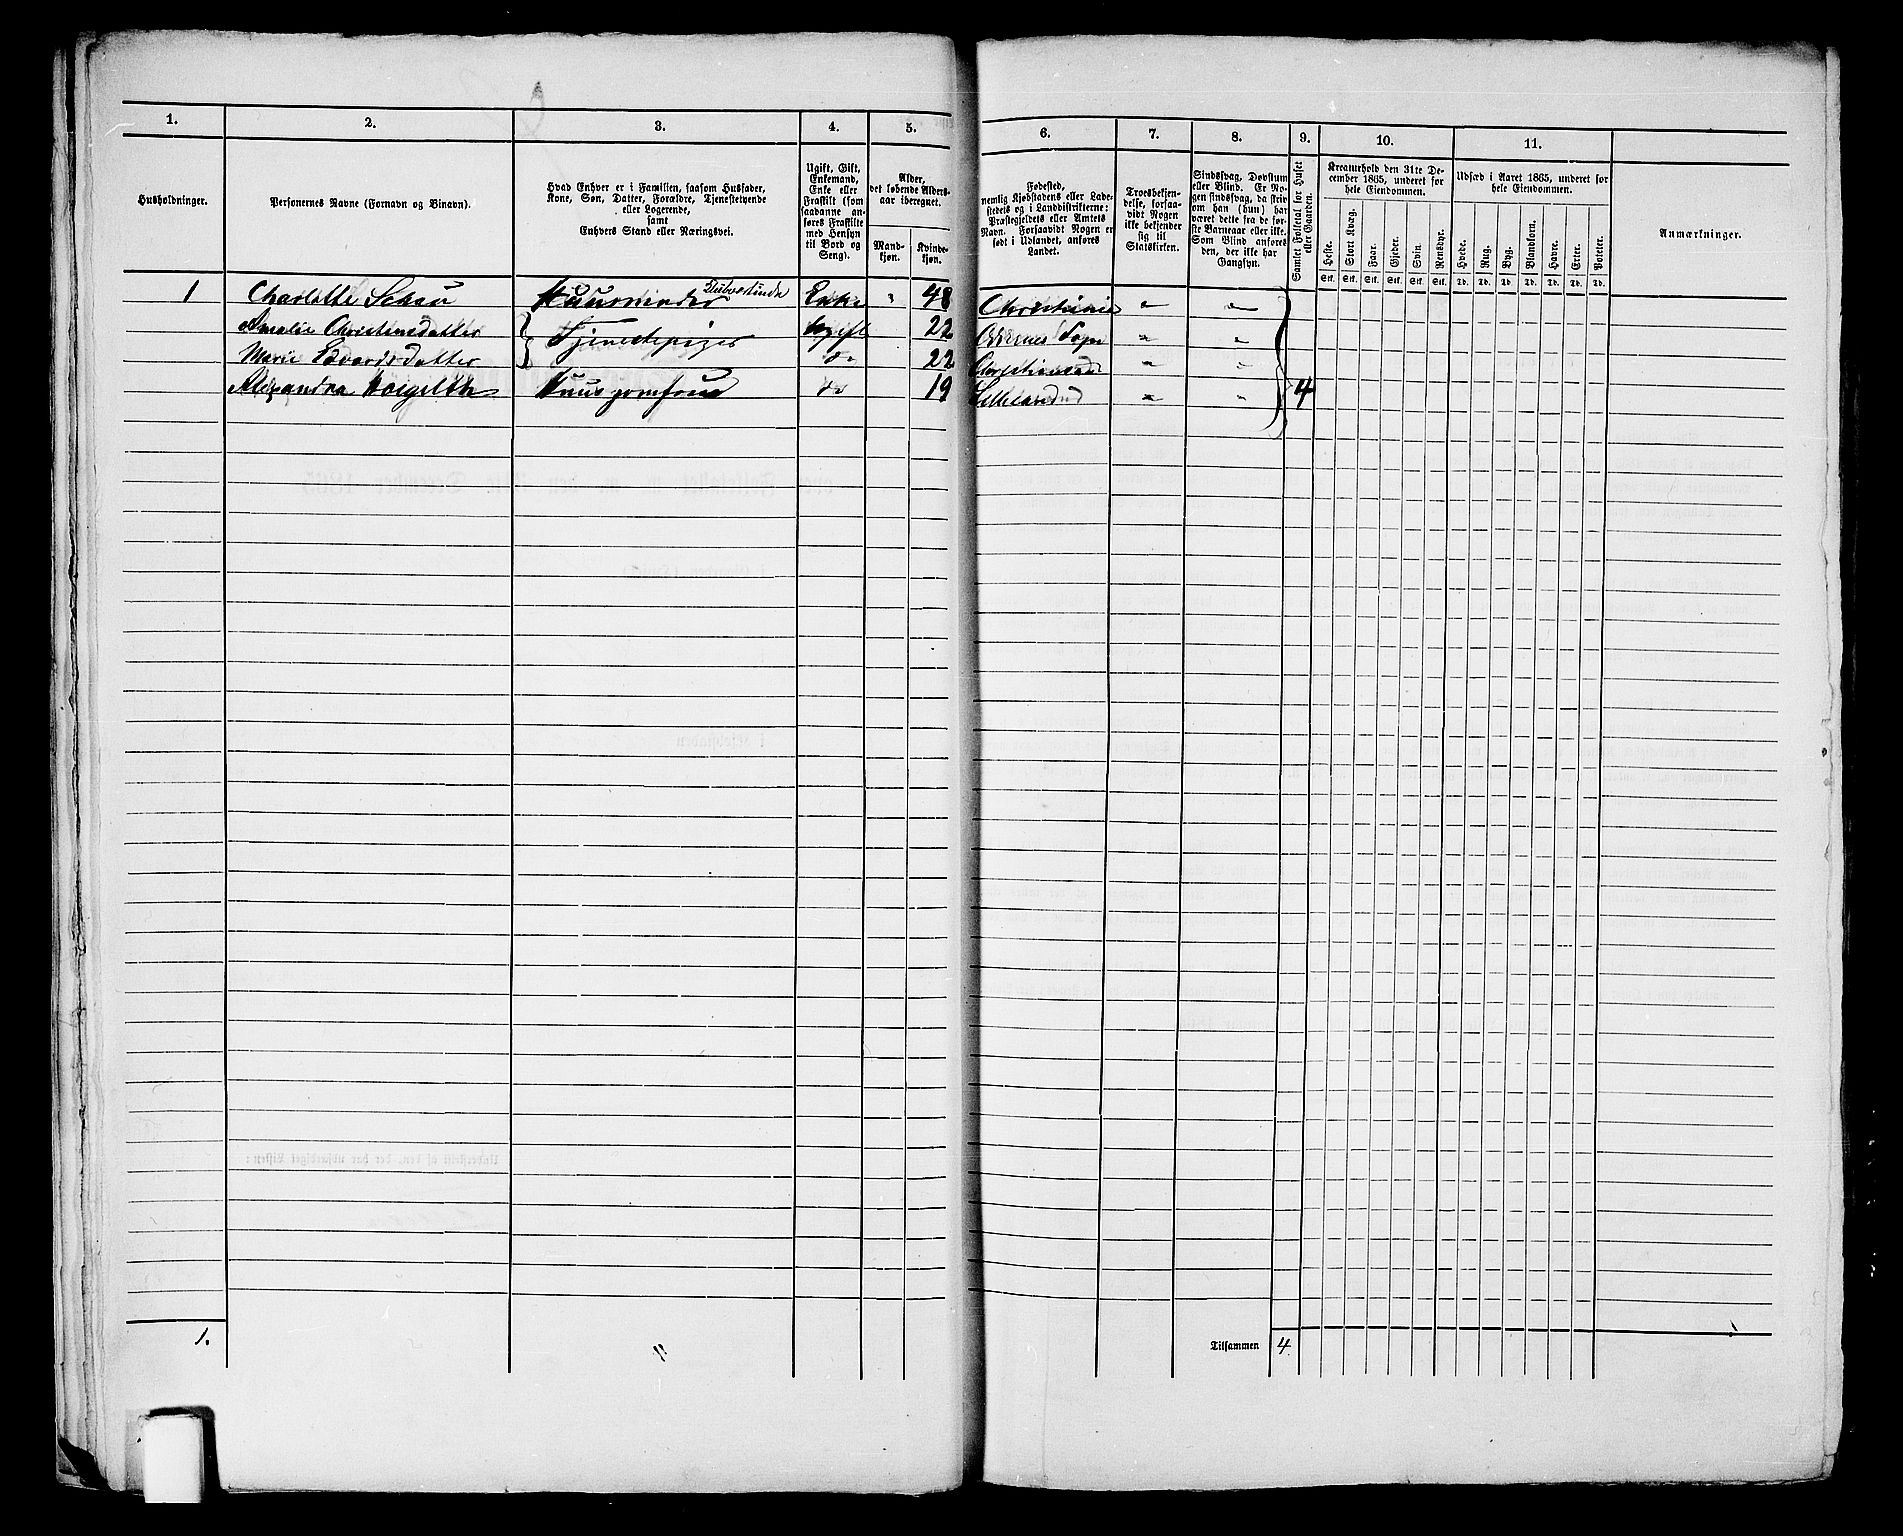 1. 2. 3. 4. 5. 6. 7. 8. 9. 10. 11.
Husholdninger.
Personernes Navne (Fornavn og Binavn).
Hvad Enhver er i Familien, saasom Husfader,
Kone, Søn, Datter, Forældre, Tjenestetyende
eller Logerende,
samt
Enhvers Stand eller Næringsvei.
Ugift, Gift,
Enkemand,
Enke eller
Fraskilt (som
saadanne an-
føres Fraskilte
med Hensyn
til Bord og
Seng).
Alder,
det løbende Alders-
aar iberegnet.
Mand-
kjøn.
Kvinde-
kjøn.
Fødested,
nemlig Kjøbstadens eller Lade-
stedets og i Landdistrikterne:
Præstegjeldets eller Amtets
Navn. Forsaavidt Nogen er
født i Udlandet, anføres
Landet.
Troesbekjen-
delse, forsaa-
vidt Nogen
ikke bekjender
sig til
Statskirken.
Sindssvag, Døvstum
eller Blind. Er No-
gen sindssvag, da skriv
om han (hun) har
været dette fra de før-
ste Barneaar eller ikke.
Som Blind anføres
den, der ikke har
Gangsyn.
Samlet Folketal for Huset
eller Gaarden.
Kreaturhold den 31te De-
cember 1865, underet for
hele Eiendommen.
Heste. Stort Kvæg. Faar. Gjeder. Svin. Rensdyr.
Stk. Stk. Stk. Stk. Stk. Stk.
Udsæd i Aaret 1865, underet for
hele Eiendommen.
Hvede. Rug. Byg. Blandkorn. Havre. Erter. Poteter.
Td. Td. Td. Td. Td. Td. Td.
Anmærkninger.
1 Charlotte Schou Enke " 48 Christiania " "
Amalie Christensdatter Tjenestepiger Ugift 22 Sogn " "
Marie Edvardsdatter do 22 Christiansand " "
Alexandra Huusjomfrue do 19 Lillesand " " 4
1. 4 Tilsammen 4